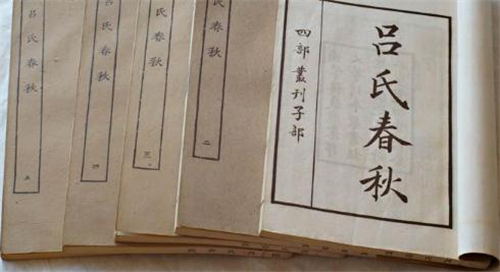 呂氏春秋
四部叢刊子部
氏春秋
二
氏春秋
三
呂氏春秋
四
呂氏春秋
五